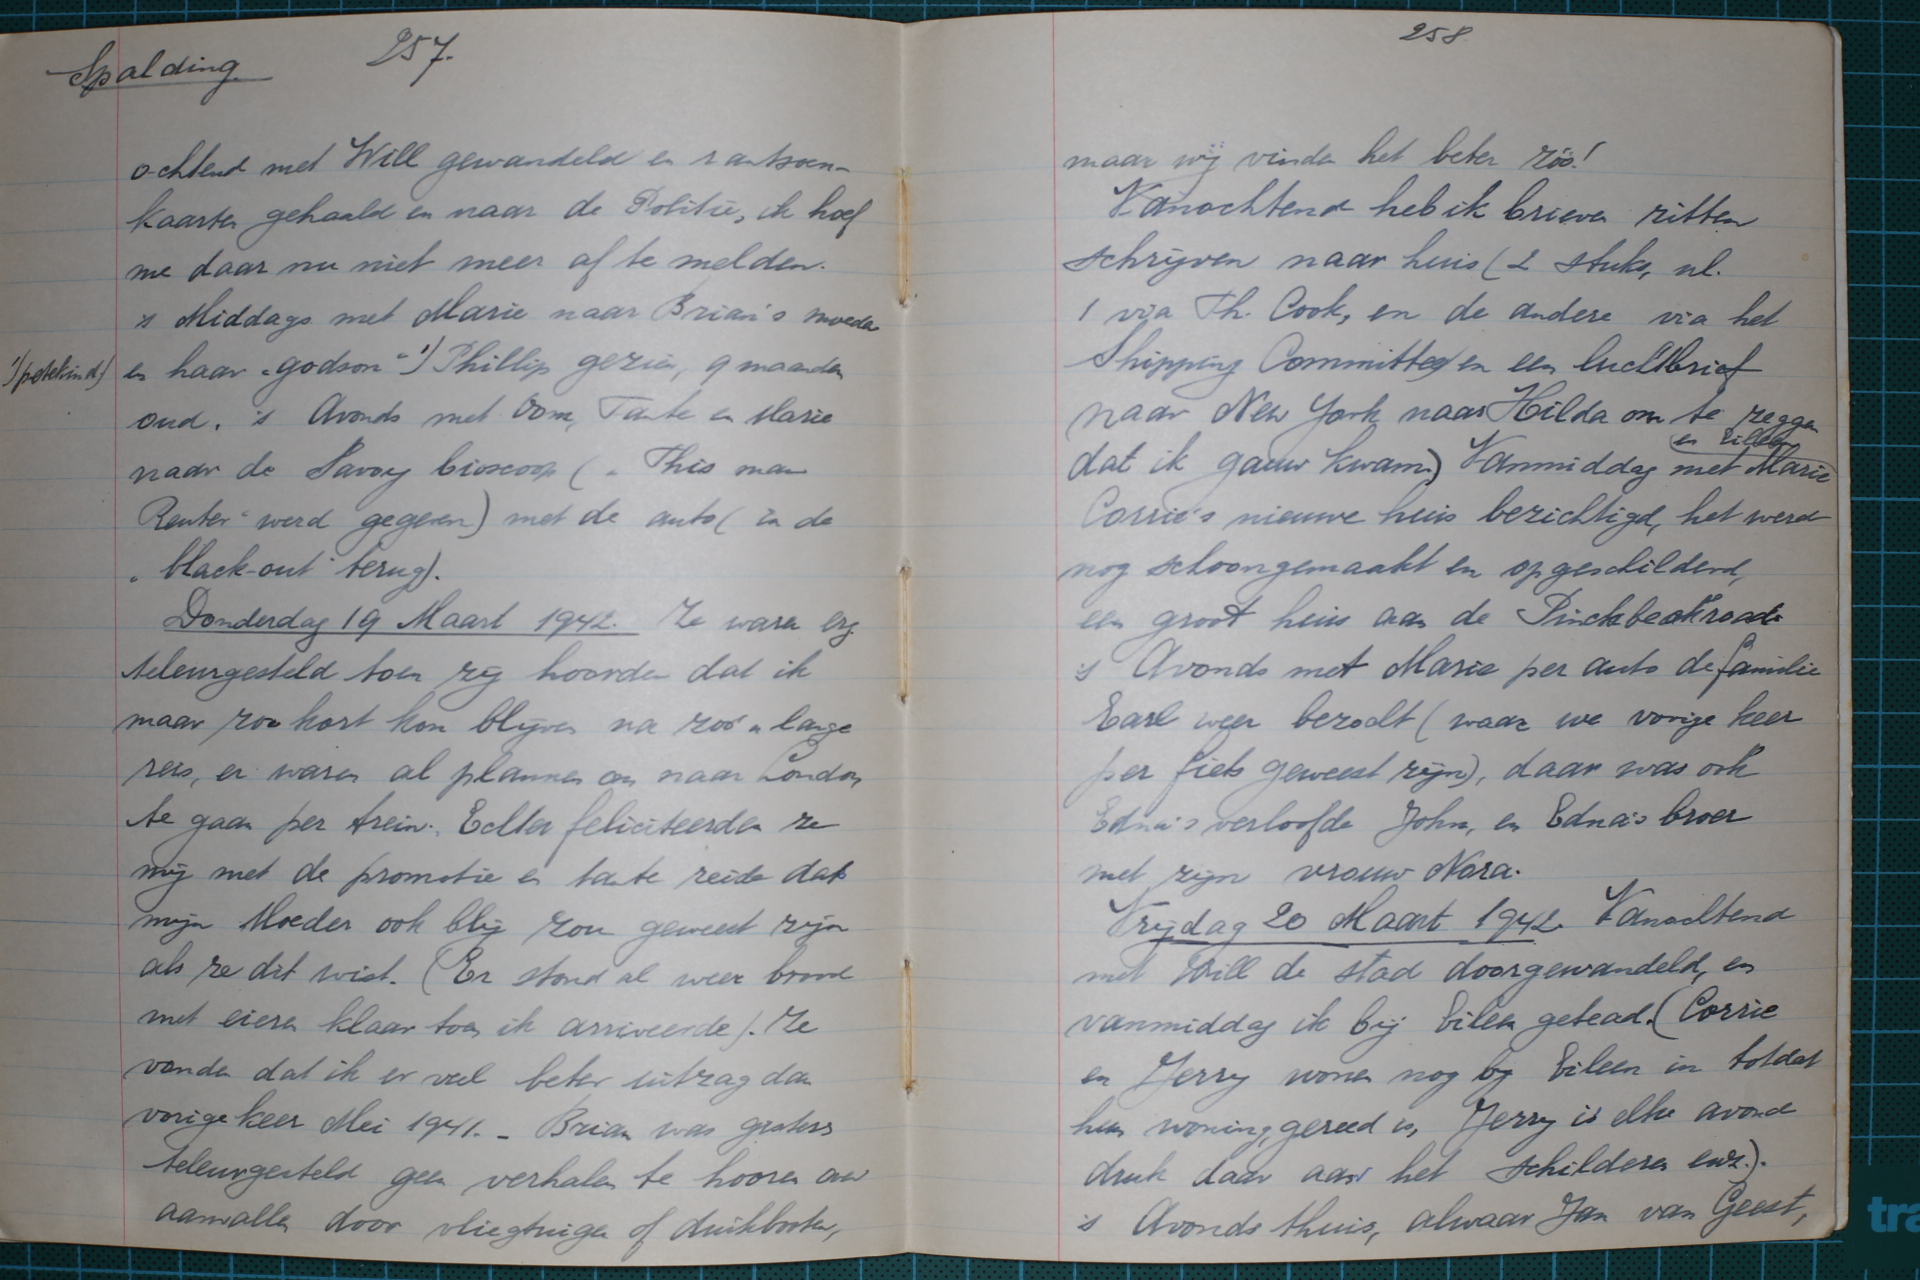 Spalding
257.
ochtend met Will gewandeld en rantsoen-
kaarten gehaald en naar de Politie, ik hoef
me daar nu niet meer af te melden.
's Middags met Marie naar Brian's moeder
1) (petekind) en haar „godson" 1) Phillip gezien, 9 maanden
oud. 's Avonds met Oom, Tante en Marie
naar de Savoy bioscoop („This man
Reuter" werd gegeven) met de auto (in de
„black-out" terug).
Donderdag 19 Maart 1942. Ze waren erg
teleurgesteld toen zij hoorden dat ik
maar zoo kort kon blijven na zoo'n lange
reis, er waren al plannen om naar London
te gaan per trein. Echter feliciteerden ze
mij met de promotie en tante zeide dat
mijn Moeder ook blij zou geweest zijn
als ze dit wist. (Er stond al weer brood
met eieren klaar toen ik arriveerde). Ze
vonden dat ik er veel beter uitzag dan
vorige keer Mei 1941. - Brian was
teleurgesteld geen verhalen te hooren over
aanvallen door vliegtuigen of duikbooten,
258
maar wij vinden het beter zóó!
Vanochtend heb ik brieven zitten
schrijven naar huis (2 stuks, nl.
1 via Th. Cook, en de andere via het
Shipping Committee) en een luchtbrief
naar New York naar Hilda om te zeggen
dat ik gauw kwam) Vanmiddag met Marie
en Eileen
Corrie's nieuwe huis bezichtigd, het werd
nog schoongemaakt en opgeschilderd,
een groot huis aan de Pinckbeckroad.
's Avonds met Marie per auto de familie
Earl weer bezocht (waar we vorige keer
per fiets geweest zijn), daar was ook
Edna's verloofde John, en Edna's broer
met zijn vrouw Nora.
Vrijdag 20 Maart 1942. Vanochtend
met Will de stad doorgewandeld, en
vanmiddag ik bij Eileen getead. (Corrie
en Jerry wonen nog bij Eileen in totdat
hun woning gereed is, Jerry is elke avond
druk daar aan het schilderen enz.).
's Avonds thuis, alwaar Jan van Geest,